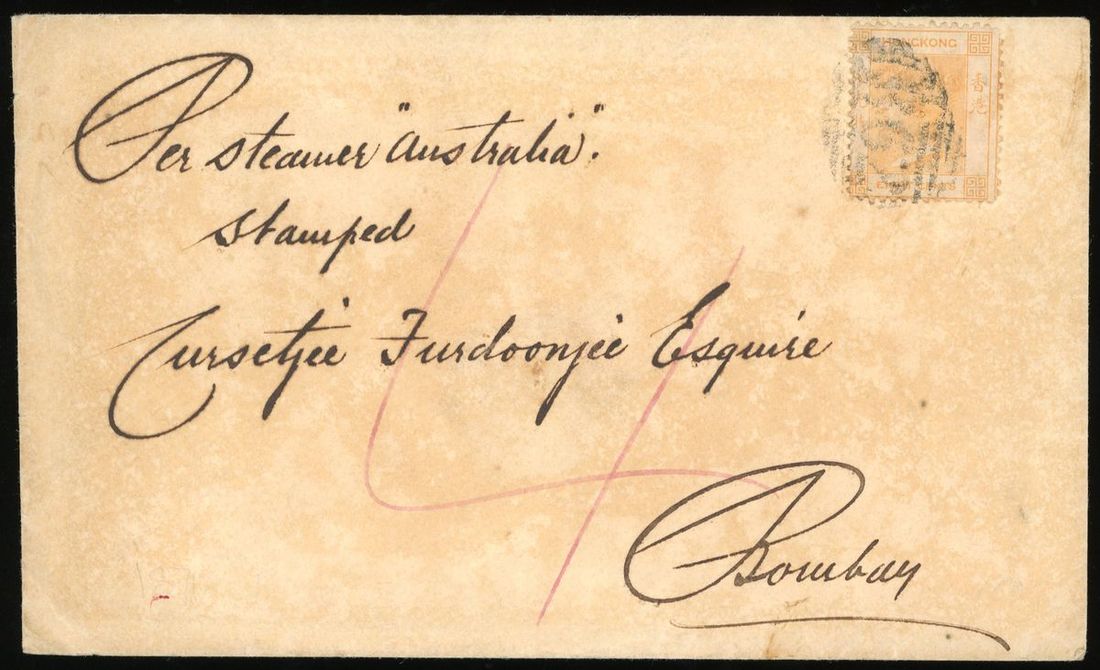 Per steamer "Australia".
stamped
Cursetjee Furdoonjee Esquire
Bombay
HONGKONG
香港
4